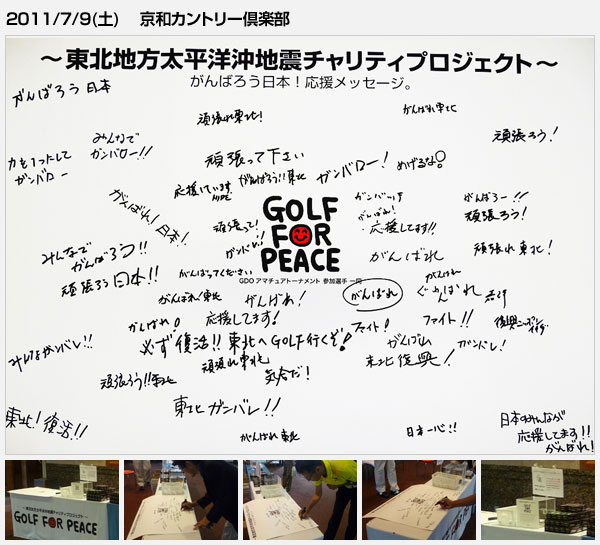 2011/7/9(土) 京和カントリー倶楽部
～東北地方太平洋沖地震チャリティプロジェクト～
がんばろう日本！応援メッセージ。
がんばろう日本
頑張れ東北！
がんばれ東北
みんなで
ガンバロー!!
頑張ろう！
力を1つにして
ガンバロー
頑張って下さい
ガンバロー！
めげるな
応援しています
がんばろう!!東北
がんばれ！日本！
がんばれ！
応援してます!!
がんばろー!!
頑張ろう！
頑張って！
ガンバレ！
GOLF
FOR
PEACE
GDO アマチュアトーナメント 参加選手一同
みんなで
がんばろう!!
頑張ろう日本!!
がんばってください
がんばれ
頑張れ東北！
がんばれ
がんばれ東北
がんばれ！
がんばれ
がんばれ！
応援してます！
ファイト！
ファイト!!
みんなガンバレ!!
必ず復活!!東北へGOLF行くぞ！
がんばれ
ガンバレ！
頑張れ東北
東北復興！
頑張ろう!!東北
気合だ！
東北ガンバレ!!
東北！復活!!
がんばれ東北
日本一心!!
日本のみんなが
応援してます!!
がんばれ！
～東北地方太平洋沖地震チャリティプロジェクト～
GOLF FOR PEACE